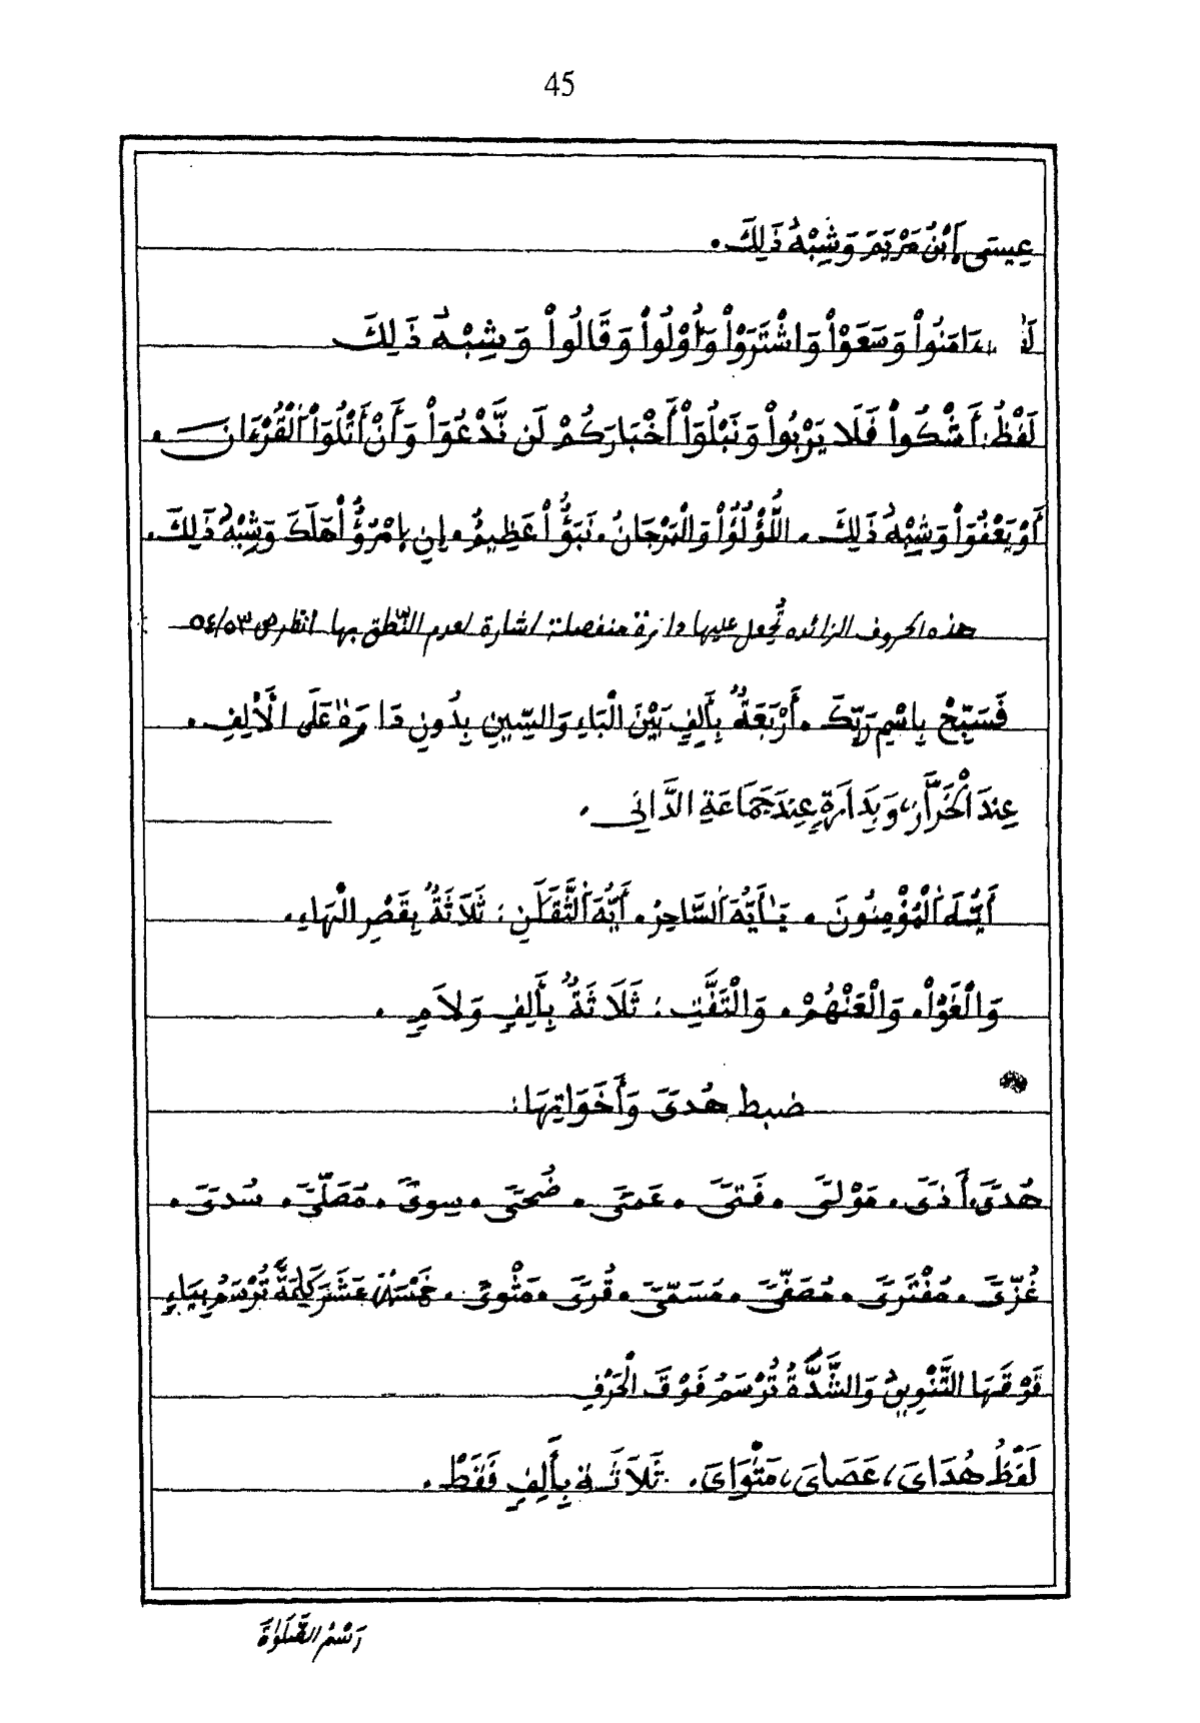 45
عِيسَى اَبْنُ مَرْيَمَ وَشِبْهُ ذَلِكَ.
ءَامَنُواْ وَسَعَوْاْ وَاشْتَرَوْاْ وَأُوْلُواْ وَقَالُواْ وَشِبْهُ ذَلِكَ
لَفْظُ: أَشْكُواْ فَلَا يَرْبُواْ وَنَبْلُوَاْ أَخْبَارَكُمْ لَن نَّدْعُوَاْ وَأَنْ أَتْلُوَاْ اَلْقُرْءَانَ.
أَوْ يَعْفُوَاْ وَشِبْهُ ذَلِكَ. اللُّؤْلُؤُاْ وَالْمَرْجَانُ. نَبَؤُاْ عَظِيمٌ. إِنِ اِمْرُؤٌاْ هَلَكَ وَشِبْهُ ذَلِكَ.
هذه الحروف الزائده تُجعل عليها دائرة منفصلة اشارة لعدم النّطق بها انظر ص ٥٤/٥٣
فَسَبِّحْ بِاسْمِ رَبِّكَ. أَرْبَعَةٌ بِأَلِفٍ بَيْنَ الْبَاءِ وَالسِّينِ بِدُونِ دَارَةٍ عَلَى الْأَلِفِ.
عِندَ الْخَرَّازِ، وَبِدَارَةٍ عِندَ جَمَاعَةِ الدَّانِي.
أَيُّهَ اَلْمُؤْمِنُونَ. يَٰأَيُّهَ اَلسَّاحِرُ. أَيُّهَ اَلثَّقَلَنِ: ثَلَاثَةٌ بِقَصْرِ الْهَاءِ.
وَالْغَوْاْ. وَالْعَنْهُمْ. وَالْتَفَّتِ: ثَلَاثَةٌ بِأَلِفٍ وَلَامٍ.
ضبط هُدىً وَأَخَوَاتِهَا:
هُدىً، أَذىً. مَوْلىً. فَتىً. عَمىً. ضُحىً. سِوىً. مُصَلّىً. سُدىً.
غُزّىً. مُفْتَرىً. مُصَفّىً. مُسَمّىً. قُرىً. مَثْوىً. خَمْسَةَ عَشَرَ كَلِمَةً تُرْسَمُ بِيَاءٍ
فَوْقَهَا التَّنْوِينُ وَالشَّدَّةُ تُرْسَمُ فَوْقَ الْحَرْفِ
لَفْظُ هُدَايَ، عَصَايَ، مَثْوَايَ. ثَلَاثَةٌ بِأَلِفٍ فَقَطْ.
رَسْمُ الصَّلَوٰةَ